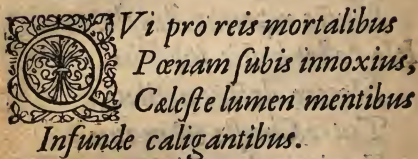 QVi pro reis mortalibus
Pœnam ſubis innoxius,
Cæleſte lumen mentibus
Infunde caligantibus.